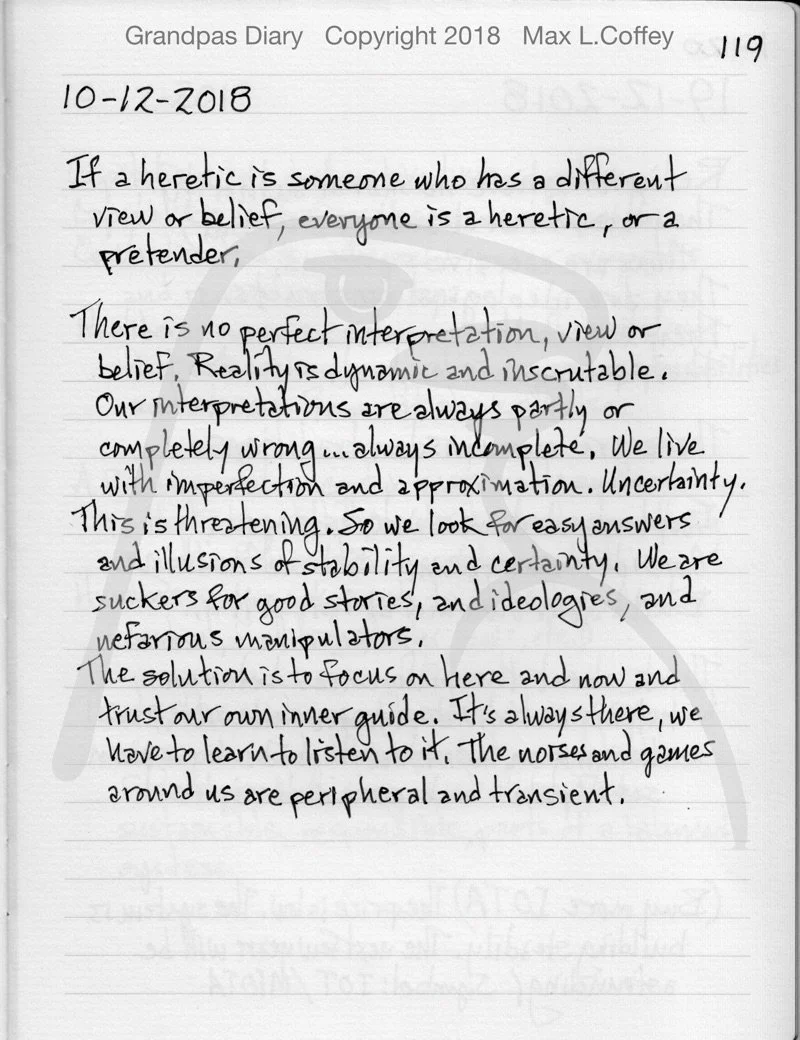 Grandpas Diary Copyright 2018 Max L.Coffey
119
10-12-2018
If a heretic is someone who has a different
view or belief, everyone is a heretic, or a
pretender.
There is no perfect interpretation, view or
belief. Reality is dynamic and inscrutable.
Our interpretations are always partly or
completely wrong...always incomplete. We live
with imperfection and approximation. Uncertainty.
This is threatening. So we look for easy answers
and illusions of stability and certainty. We are
suckers for good stories, and ideologies, and
nefarious manipulators.
The solution is to focus on here and now and
trust our own inner guide. It's always there, we
have to learn to listen to it. The noises and games
around us are peripheral and transient.